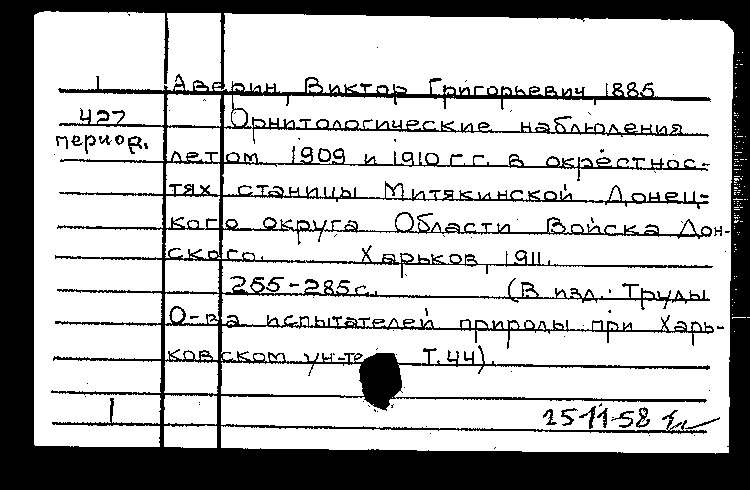 1 Аверин, Виктор Григорьевич, 1885
427 Орнитологические наблюдения
период.
летом 1909 и 1910 г.г. в окрестнос-
тях станицы Митякинской Донец-
кого округа Области Войска Дон-
ского. Харьков, 1911.
255-285 с. (В изд.: Труды
О-ва испытателей природы при Харь-
ковском ун-те Т.44).
1 25-11-58